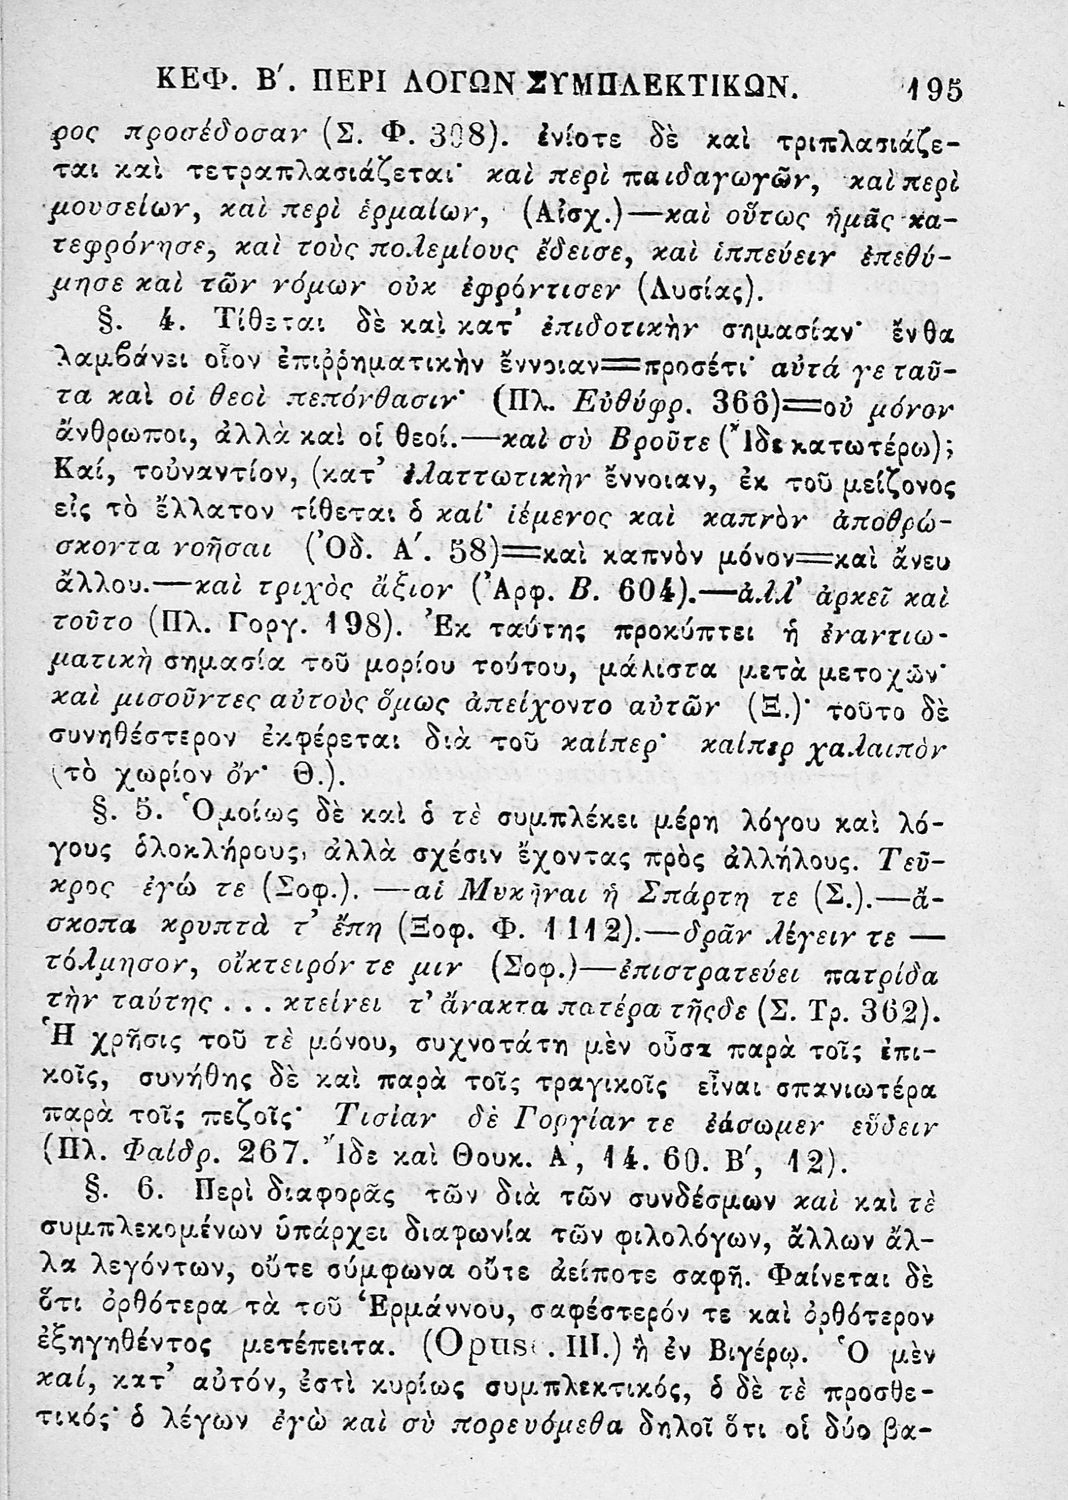 ΚΕΦ. Β΄. ΠΕΡΙ ΛΟΓΩΝ ΣΥΜΠΛΕΚΤΙΚΩΝ. 195
ρος προσέδοσαν (Σ. Φ. 398). ἐνίοτε δὲ καὶ τριπλασιάζε-
ται καὶ τετραπλασιάζεται· καὶ περὶ παιδαγωγῶν, καὶ περὶ
μουσείων, καὶ περὶ ἑρμαίων, (Αἰσχ.)—καὶ οὕτως ἡμᾶς κα-
τεφρόνησε, καὶ τοὺς πολεμίους ἔδεισε, καὶ ἱππεύειν ἐπεθύ-
μησε καὶ τῶν νόμων οὐκ ἐφρόντισεν (Λυσίας).
§. 4. Τίθεται δὲ καὶ κατ' ἐπιδοτικὴν σημασίαν· ἔνθα
λαμβάνει οἷον ἐπιῤῥηματικὴν ἔννοιαν=προσέτι· αὐτά γε ταῦ-
τα καὶ οἱ θεοὶ πεπόνθασιν· (Πλ. Εὐθύφρ. 366)=οὐ μόνον
ἄνθρωποι, ἀλλὰ καὶ οἱ θεοί.—καὶ σὺ Βροῦτε (Ἴδε κατωτέρω);
Καί, τοὐναντίον, (κατ' ἐλαττωτικὴν ἔννοιαν, ἐκ τοῦ μείζονος
εἰς τὸ ἔλλατον τίθεται ὁ καί· ἱέμενος καὶ καπνὸν ἀποθρώ-
σκοντα νοῆσαι (Ὀδ. Α΄. 58)=καὶ καπνὸν μόνον=καὶ ἄνευ
ἄλλου.—καὶ τριχὸς ἄξιον (Ἀρφ. Β. 604).—ἀλλ' ἀρκεῖ καὶ
τοῦτο (Πλ. Γοργ. 198). Ἐκ ταύτης προκύπτει ἡ ἐναντιω-
ματικὴ σημασία τοῦ μορίου τούτου, μάλιστα μετὰ μετοχῶν·
καὶ μισοῦντες αὐτοὺς ὅμως ἀπείχοντο αὐτῶν (Ξ.)· τοῦτο δὲ
συνηθέστερον ἐκφέρεται διὰ τοῦ καίπερ· καίπερ χαλαιπὸν
(τὸ χωρίον ὄν· Θ.).
§. 5. Ὁμοίως δὲ καὶ ὁ τὲ συμπλέκει μέρη λόγου καὶ λό-
γους ὁλοκλήρους, ἀλλὰ σχέσιν ἔχοντας πρὸς ἀλλήλους. Τεῦ-
κρος ἐγώ τε (Σοφ.). —αἱ Μυκῆναι ἡ Σπάρτη τε (Σ.).—ἄ-
σκοπα κρυπτὰ τ' ἔπη (Ξοφ. Φ. 1112).—δρᾶν λέγειν τε —
τόλμησον, οἴκτειρόν τε μιν (Σοφ.)—ἐπιστρατεύει πατρίδα
τὴν ταύτης . . . κτείνει τ' ἄνακτα πατέρα τῆςδε (Σ. Τρ. 362).
Ἡ χρῆσις τοῦ τὲ μόνου, συχνοτάτη μὲν οὖσα παρὰ τοῖς ἐπι-
κοῖς, συνήθης δὲ καὶ παρὰ τοῖς τραγικοῖς εἶναι σπανιωτέρα
παρὰ τοῖς πεζοῖς· Τισίαν δὲ Γοργίαν τε ἐάσωμεν εὕδειν
(Πλ. Φαίδρ. 267. Ἴδε καὶ Θουκ. Α΄, 14. 60. Β΄, 12).
§. 6. Περὶ διαφορᾶς τῶν διὰ τῶν συνδέσμων καὶ καὶ τὲ
συμπλεκομένων ὑπάρχει διαφωνία τῶν φιλολόγων, ἄλλων ἄλ-
λα λεγόντων, οὔτε σύμφωνα οὔτε ἀείποτε σαφῆ. Φαίνεται δὲ
ὅτι ὀρθότερα τὰ τοῦ Ἑρμάννου, σαφέστερόν τε καὶ ὀρθότερον
ἐξηγηθέντος μετέπειτα. (Opusc. III.) ἢ ἐν Βιγέρῳ. Ὁ μὲν
καί, κατ' αὐτόν, ἐστὶ κυρίως συμπλεκτικός, ὁ δὲ τὲ προσθε-
τικός· ὁ λέγων ἐγὼ καὶ σὺ πορευόμεθα δηλοῖ ὅτι οἱ δύο βα-